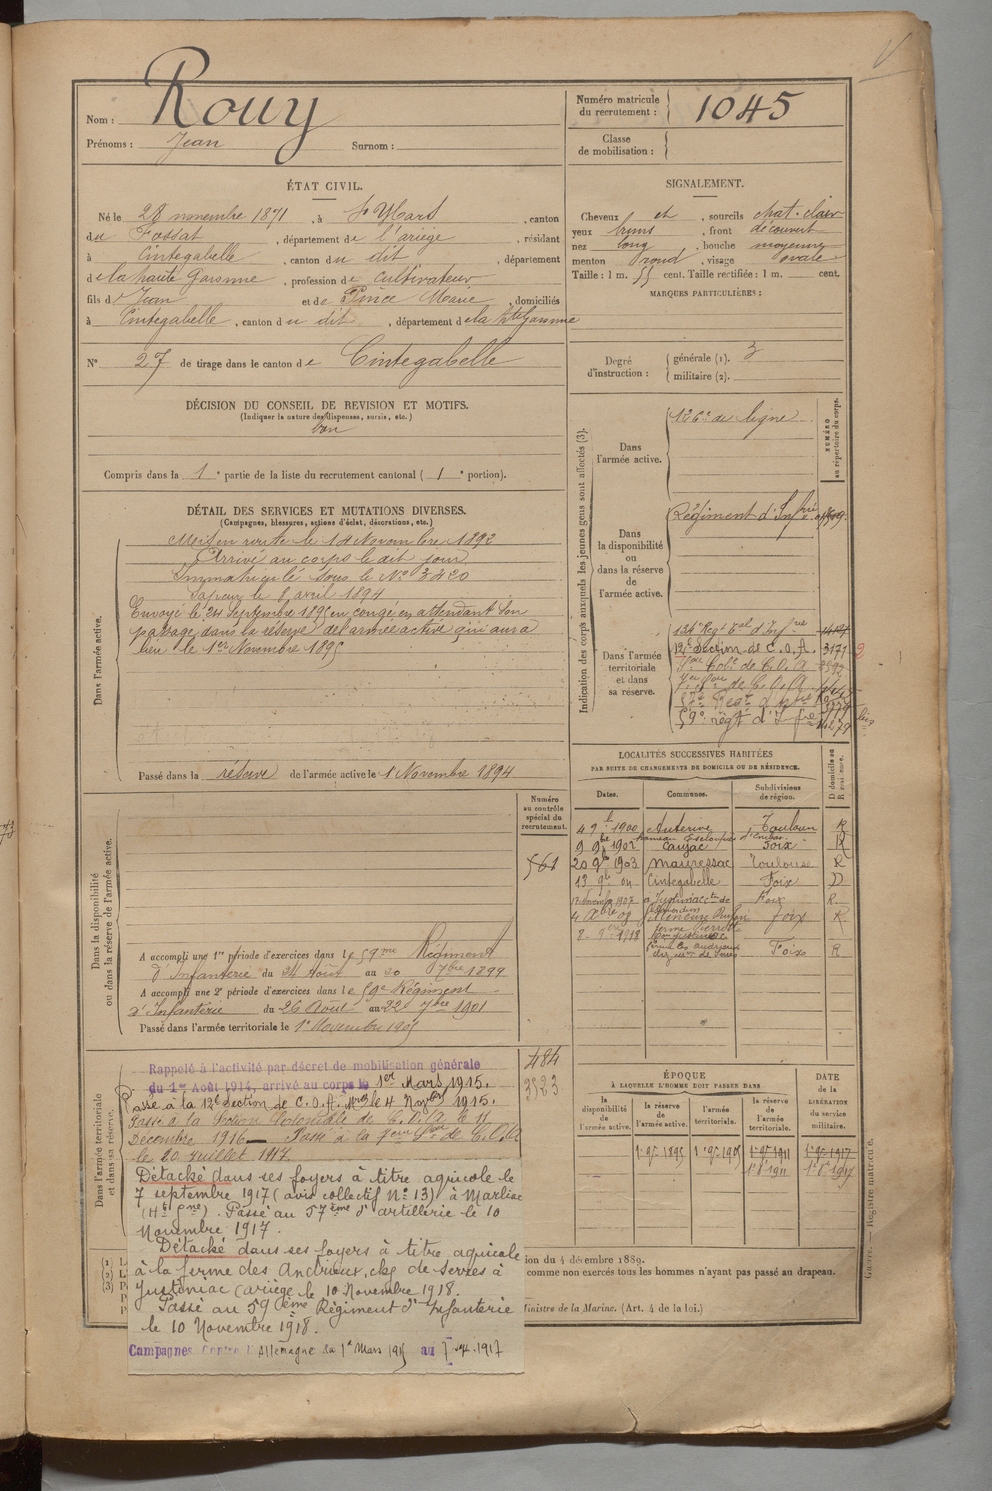 Nom : Rouy
Prénoms : Jean Surnom :
Numéro matricule du recrutement : 1045
Classe de mobilisation :
ÉTAT CIVIL.
Né le 28 novembre 1871, à St Ybars, canton
du Fossat, département de l'ariège, résidant
à Cintegabelle, canton du dit, département
de la haute Garonne, profession de cultivateur
fils de Jean et de Pince Marie, domiciliés
à Cintegabelle, canton du dit, département de la Hte Garonne
SIGNALEMENT.
Cheveux et, sourcils chat. clair
yeux bruns, front découvert
nez long, bouche moyenne
menton rond, visage ovale
Taille : 1 m. 55 cent. Taille rectifiée : 1 m. cent.
MARQUES PARTICULIÈRES :
N° 27 de tirage dans le canton de Cintegabelle
Degré d'instruction : générale (1). 3
militaire (2).
DÉCISION DU CONSEIL DE REVISION ET MOTIFS.
(Indiquer la nature des dispenses, sursis, etc.)
bon
Compris dans la 1e partie de la liste du recrutement cantonal (1e portion).
DÉTAIL DES SERVICES ET MUTATIONS DIVERSES.
(Campagnes, blessures, actions d'éclat, décorations, etc.)
Dans l'armée active.
Mis en route le 14 Novembre 1892
Arrivé au corps le dit jour
Immatriculé sous le N° 3420
Sapeur le 8 avril 1894
Envoyé le 24 Septembre 1895 en congé en attendant son
passage dans la réserve de l'armée active qui aura
lieu le 1er Novembre 1895
Passé dans la réserve de l'armée active le 1 Novembre 1894
Indication des corps auxquels les jeunes gens sont affectés (3).
NUMÉRO au répertoire du corps.
Dans l'armée active.
126e de ligne
Dans la disponibilité ou dans la réserve de l'armée active.
Régiment d'Infrie
Dans l'armée territoriale et dans sa réserve.
134e Regt Tal d'Infrie
12e Section de C.O.A. 3171
Son Cole de C.O.A
7eme Son de C.O.A
57e Regt d'Artie
59e regt d'Infie
LOCALITÉS SUCCESSIVES HABITÉES
PAR SUITE DE CHANGEMENTS DE DOMICILE OU DE RÉSIDENCE.
Dates. Communes. Subdivisions de région. D domicile ou R résidence.
1900 Auterive Toulouse R
9 9bre 1902 Caujac Foix R
20 9bre 1903 Mauressac Toulouse R
13 9bre 04 Cintegabelle Foix D
Novembre 1907 à Justiniac Foix R
Foix R
1918 Foix R
Numéro au contrôle spécial du recrutement.
561
Dans la disponibilité ou dans la réserve de l'armée active.
A accompli une 1re période d'exercices dans le 59me Régiment
d'Infanterie du 24 Août au 20 7bre 1899
A accompli une 2e période d'exercices dans le 59e Régiment
d'Infanterie du 26 Août au 22 7bre 1901
Passé dans l'armée territoriale le 1er Novembre 1905
484
3523
Dans l'armée territoriale et dans sa réserve.
Rappelé à l'activité par décret de mobilisation générale
du 1er Août 1914, arrivé au corps le 1er Mars 1915.
Passé à la 12e Section de C.O.A. le 4 Nov 1915.
Passé à la Section Coloniale de C.O.A le 11
Décembre 1916 — Passé à la 7eme Son de C.O.A
le 20 juillet 1917
Détaché dans ses foyers à titre agricole le
7 septembre 1917 (avis collectif N° 13) à Marliac
(Hte Gne). Passé au 57ème d'artillerie le 10
Novembre 1917.
Détaché dans ses foyers à titre agricole
à la ferme des Andrieux, ckg de Serres à
Justiniac (ariège) le 10 Novembre 1918.
Passé au 59ème Régiment d'Infanterie
le 10 Novembre 1918.
Campagnes Contre l'Allemagne du 1er Mars 1915 au 7 sept. 1917
ÉPOQUE
À LAQUELLE L'HOMME DOIT PASSER DANS
la disponibilité de l'armée active. la réserve de l'armée active. l'armée territoriale. la réserve de l'armée territoriale.
DATE de la LIBÉRATION du service militaire.
1er 9bre 1895 1er 9bre 1905 1er 9bre 1911 1er 9bre 1917
1er 8 1911 1er 8 1917
ion du 4 décembre 1889.
comme non exercés tous les hommes n'ayant pas passé au drapeau.
Ministre de la Marine. (Art. 4 de la loi.)
Guerre. — Registre matricule.